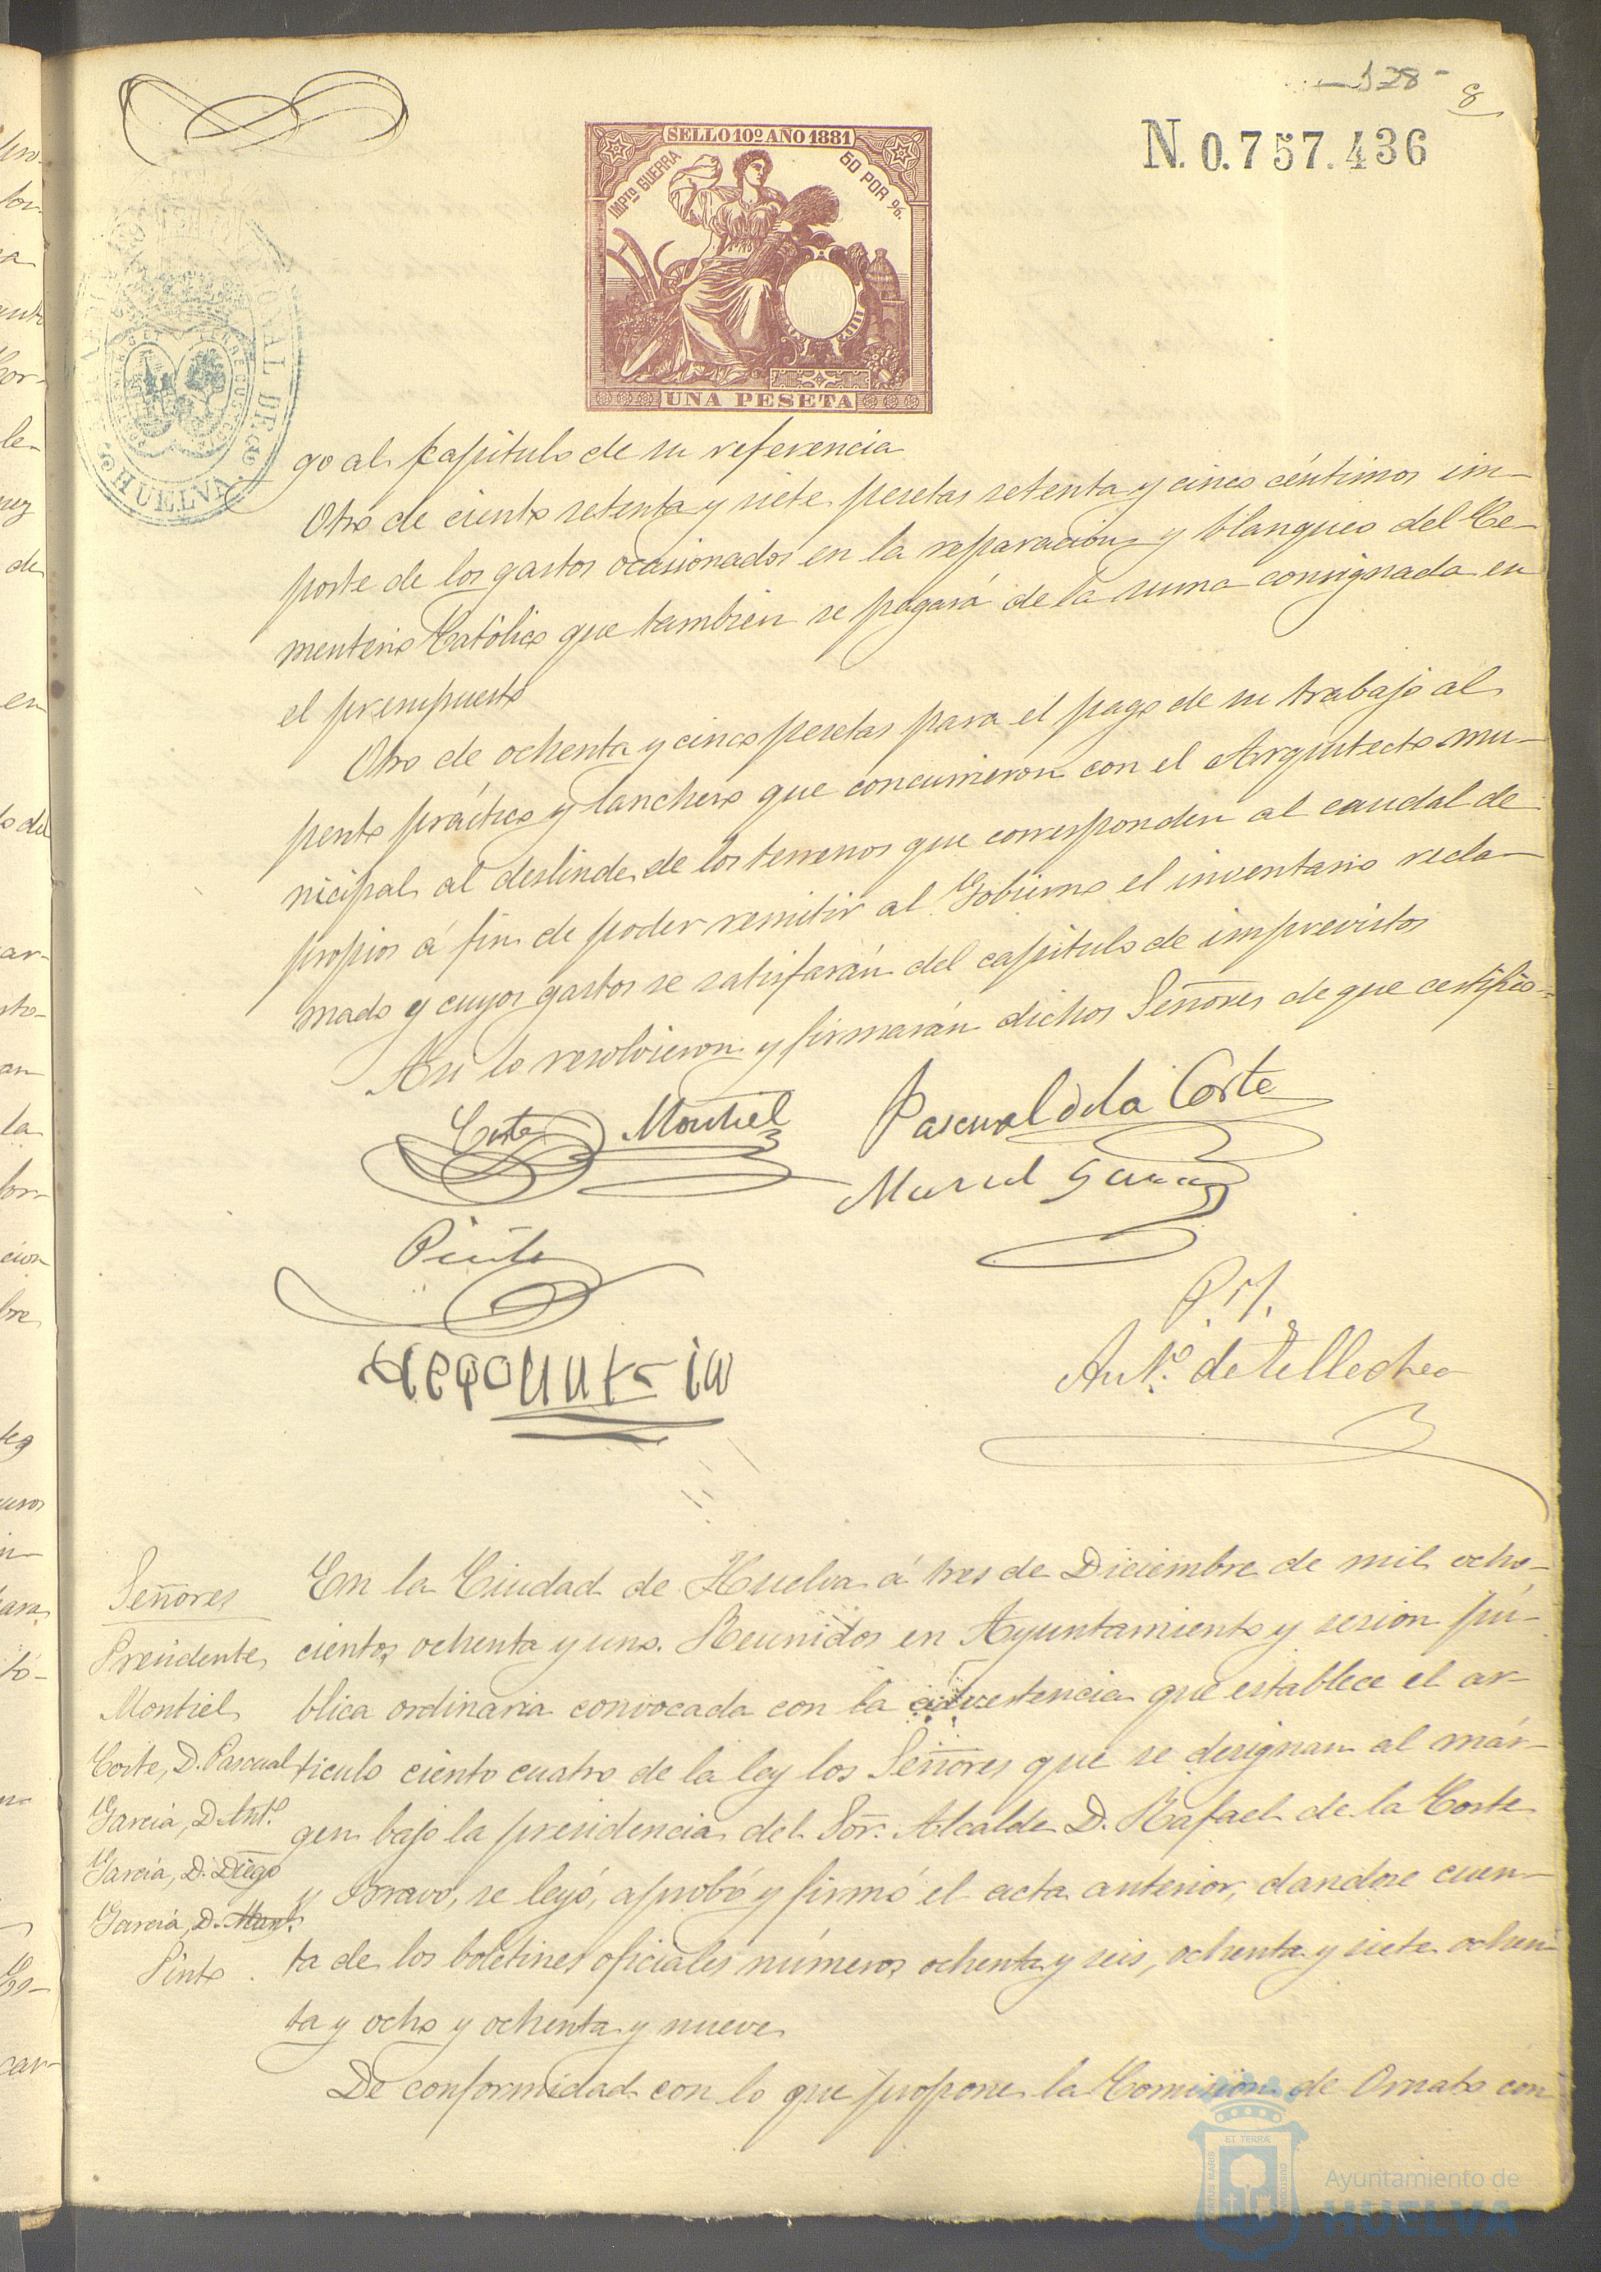 -328-
8
N. 0.757.436
SELLO 10º AÑO 1881
IMPTO GUERRA
50 POR %.
UNA PESETA
HUELVA
go al capitulo de su referencia
Otro de ciento setenta y siete pesetas setenta y cinco céntimos im-
porte de los gastos ocasionados en la reparacion y blanqueo del Ce-
menterio Católico que tambien se pagará de la suma consignada en
el presupuesto
Otro de ochenta y cinco pesetas para el pago de su trabajo al
perito práctico y lanchero que concurrieron con el Arquitecto mu-
nicipal al deslinde de los terrenos que corresponden al caudal de
propios á fin de poder remitir al Gobierno el inventario recla-
mado y cuyos gastos se satisfarán del capitulo de imprevistos
Asi lo resolvieron y firmarán dichos Señores de que certifico=
Corte Montiel Pascual de la Corte
Manuel Garcia
Pinto
P. I.
Antº. de Tellechea
Señores
Presidente
Montiel
Corte, D. Pascual
Garcia, D. Antº.
Garcia, D. Diego
Garcia, D. Manl.
Pinto
En la Ciudad de Huelva á tres de Diciembre de mil ocho-
cientos ochenta y uno. Reunidos en Ayuntamiento y sesion pú-
blica ordinaria convocada con la advertencia que establece el ar-
ticulo ciento cuatro de la ley los Señores que se designan al már-
gen bajo la presidencia del Sor. Alcalde D. Rafael de la Corte
y Bravo, se leyó, aprobó y firmó el acta anterior, dandose cuen-
ta de los boletines oficiales números ochenta y seis, ochenta y siete ochen-
ta y ocho y ochenta y nueve
De conformidad con lo que propone la Comision de Ornato con
Ayuntamiento de
HUELVA